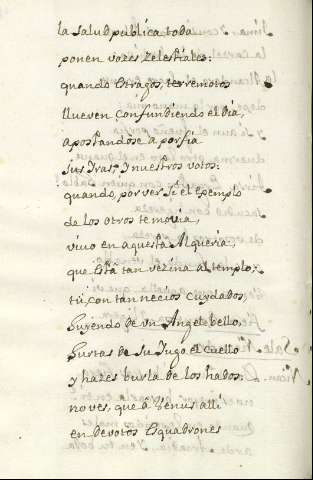 la salud publica toda
ponen vozes Zelestiales:
quando estragos, terremotos
llueven, confundiendo el dia,
apostandose a porfia
sus Iras, y nuestros votos:
quando, por ver si el exemplo
de los otros te movia,
vivo en aquesta Alqueria,
que està tan vezina al templo;
tù, con tan necios cuydados,
huyendo de un Angel bello,
hurtas de su Iugo el cuello
y hazes burla de los hados:
no ves, que à Venus alli
en devotos Esquadrones